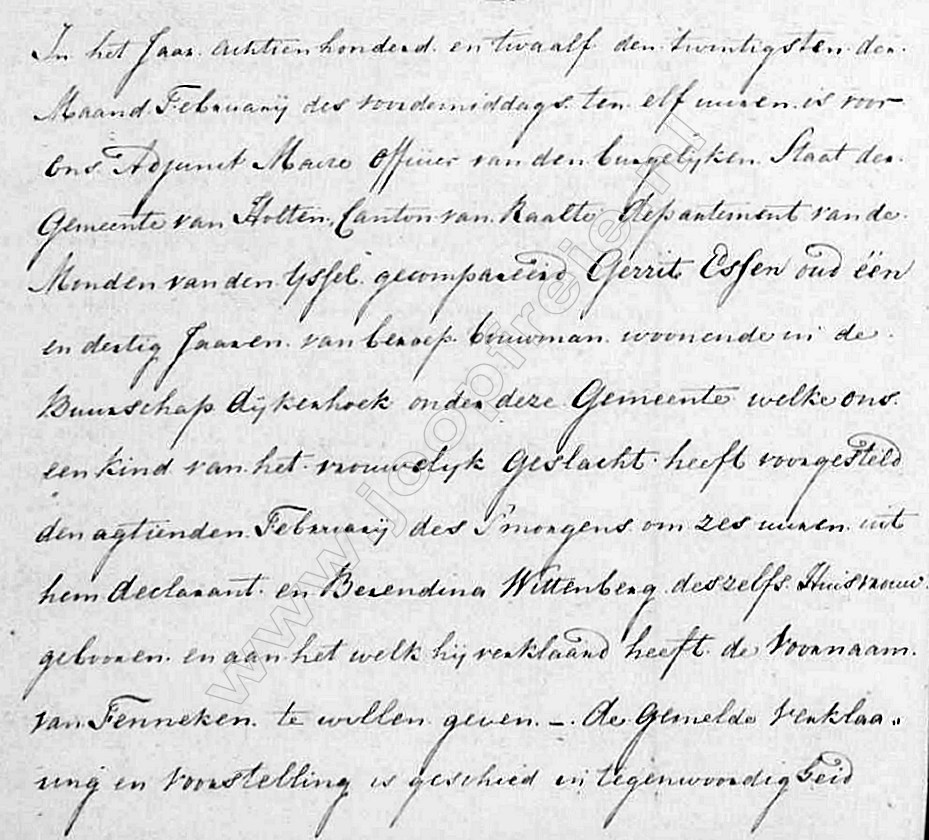 In het Jaar achtien honderd en twaalf den twintigsten der
Maand Februarij des voordemiddags ten elf uuren is voor
Ons Adjunct Maire Officier van den burgelijken Staat der
Gemeente van Holten, Canton van Raalte departement van de
Monden van den Yssel gecompareerd Gerrit Essen oud één
en dertig Jaaren van beroep bouwman woonende in de
Buurschap dijkerhoek onder deze Gemeente welke ons
een kind van het vrouwelyk Geslacht heeft voorgesteld
den agtienden Februarij des S'morgens om zes uuren uit
hem declarant en Berendina Wittenberg deszelfs Huisvrouw
gebooren en aan het welk hij verklaard heeft de Voornaam
van Fenneken te willen geven. – de Gemelde verklaa„
ring en voorstelling is geschied in tegenwoordigheid
www.joopfreije.nl